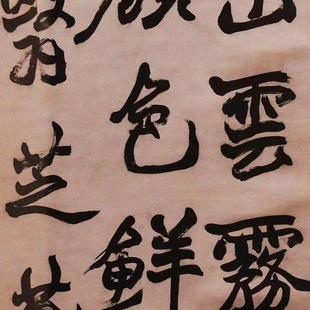 山雲霧
顏色鮮
翳芝